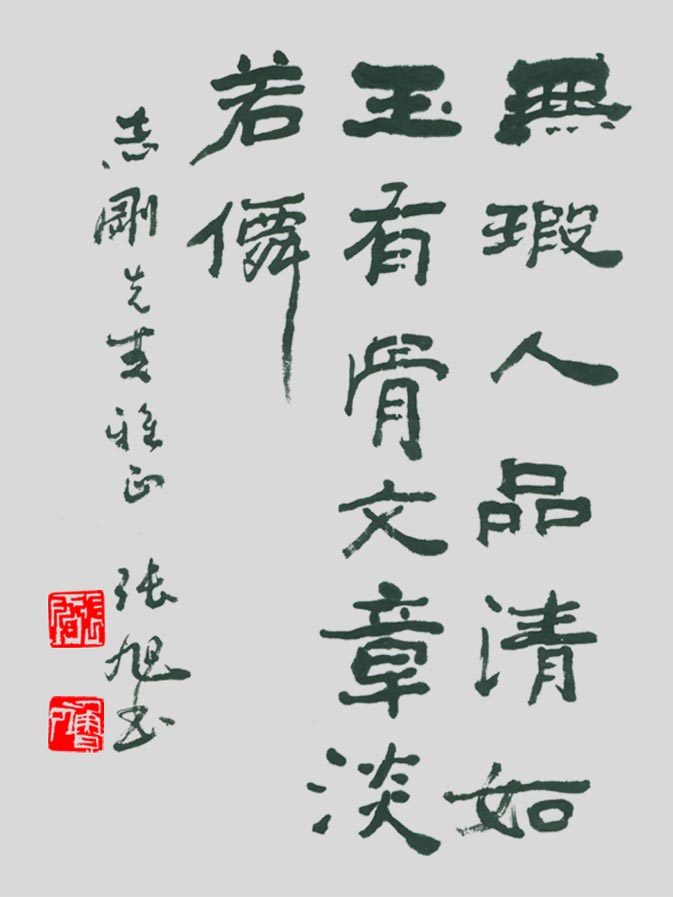 無瑕人品清如
玉有骨文章淡
若僊
志剛先生雅正 张旭书